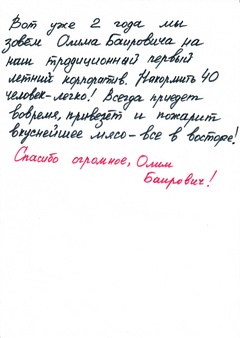 Вот уже 2 года мы
зовем Олима Баировича на
наш традиционный первый
летний корпоратив. Накормить 40
человек-легко! Всегда приедет
вовремя, привезёт и пожарит
вкуснейшее мясо - все в восторге!
Спасибо огромное, Олим
Баирович!